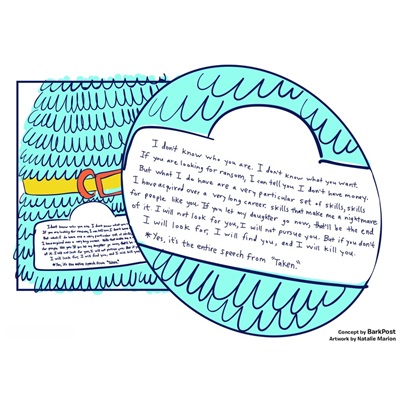 I don't know who you are. I don't know what you want.
If you are looking for ransom, I can tell you I don't have money.
But what I do have are a very particular set of skills, skills
I have acquired over a very long career. skills that make me a nightmare
for people like you. If you let my daughter go now, that'll be the end
of it. I will not look for you, I will not pursue you. But if you don't
I will look for, I will find you, and I will kill you.
*Yes, it's the entire speech from "Taken."
Concept by BarkPost
Artwork by Natalie Marion